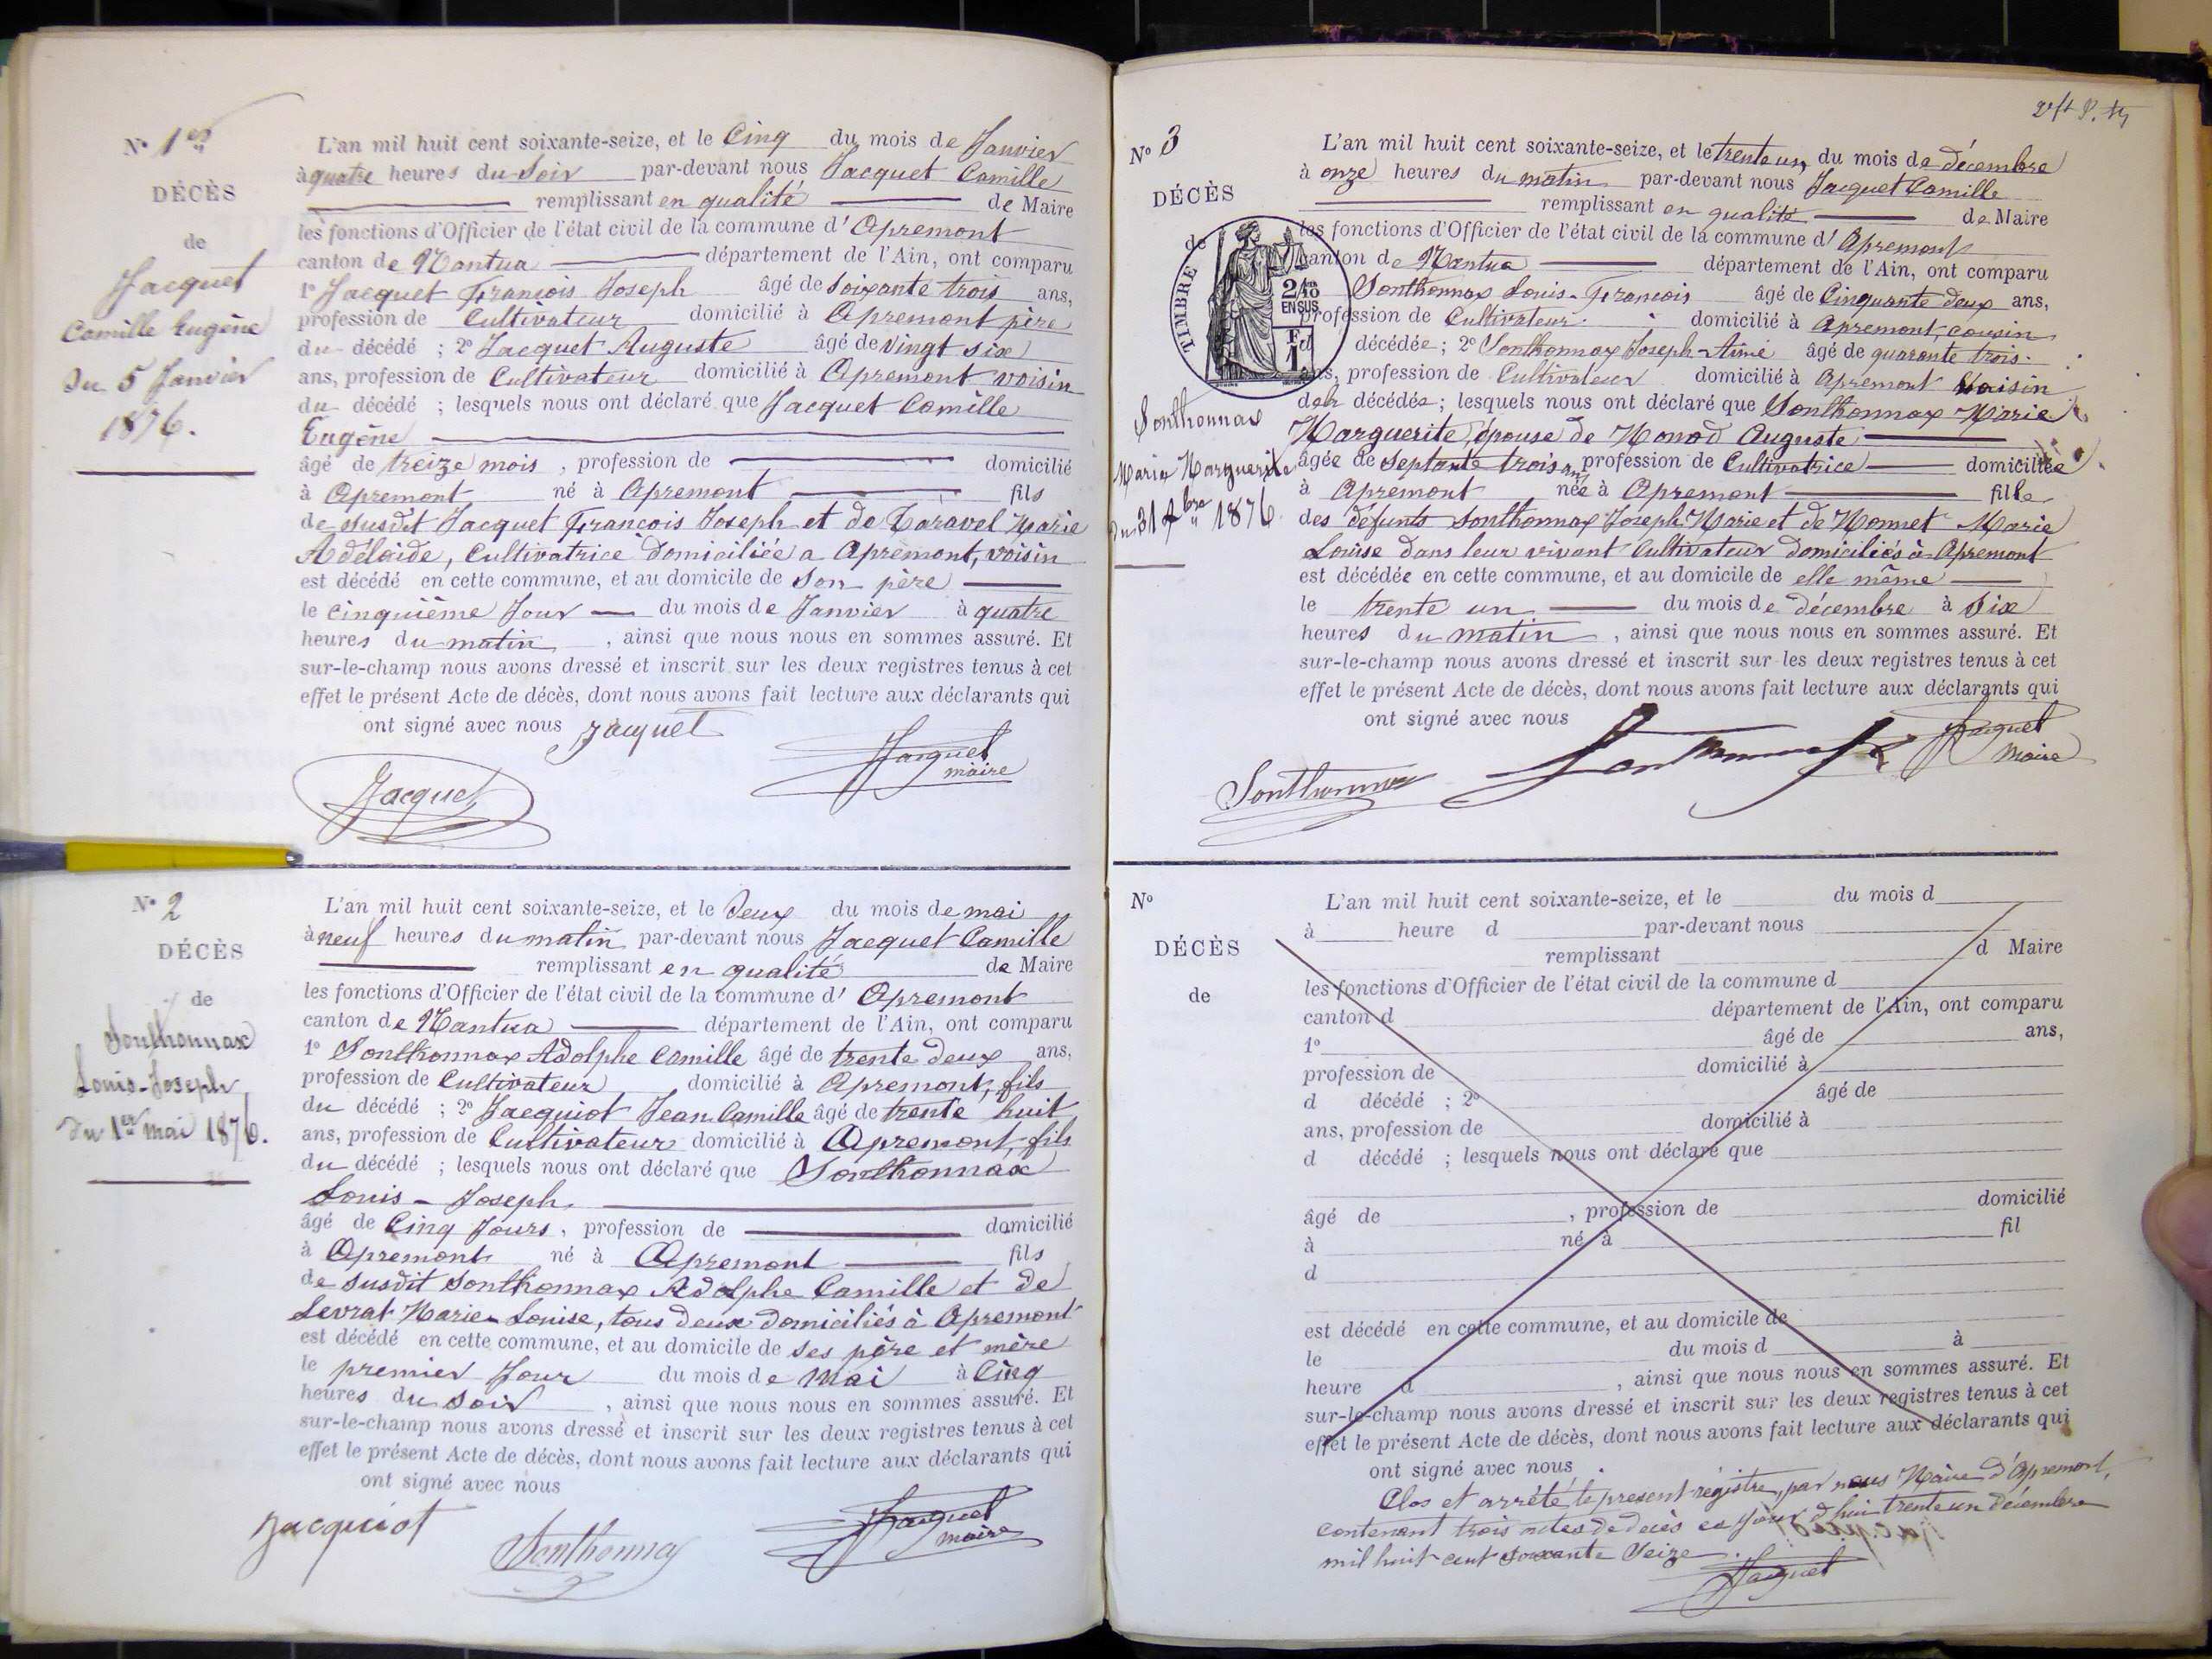 N° 1er
DÉCÈS
de
Jacquet
Camille Eugène
Du 5 Janvier
1876.
L'an mil huit cent soixante-seize, et le Cinq du mois de Janvier
à quatre heures du Soir par-devant nous Jacquet Camille
remplissant en qualité de Maire
les fonctions d'Officier de l'état civil de la commune d' Apremont
canton de Nantua département de l'Ain, ont comparu
1° Jacquet François Joseph âgé de soixante trois ans,
profession de Cultivateur domicilié à Apremont père
du décédé ; 2° Jacquet Auguste âgé de vingt six
ans, profession de Cultivateur domicilié à Apremont voisin
du décédé ; lesquels nous ont déclaré que Jacquet Camille
Eugène
âgé de treize mois , profession de domicilié
à Apremont né à Apremont fils
de susdit Jacquet François Joseph et de Taravel Marie
Adélaide, Cultivatrice domiciliée a Apremont, voisin
est décédé en cette commune, et au domicile de son père
le cinquième Jour du mois de Janvier à quatre
heures du matin , ainsi que nous nous en sommes assuré. Et
sur-le-champ nous avons dressé et inscrit sur les deux registres tenus à cet
effet le présent Acte de décès, dont nous avons fait lecture aux déclarants qui
ont signé avec nous Jacquet
Jacquet
maire
Jacquet
N° 2
DÉCÈS
de
Sonthonnax
Louis-Joseph
Du 1er mai 1876.
L'an mil huit cent soixante-seize, et le Deux du mois de mai
à neuf heures du matin par-devant nous Jacquet Camille
remplissant en qualité de Maire
les fonctions d'Officier de l'état civil de la commune d' Apremont
canton de Nantua département de l'Ain, ont comparu
1° Sonthonnax Adolphe Camille âgé de trente deux ans,
profession de Cultivateur domicilié à Apremont, fils
du décédé ; 2° Jacquiot Jean Camille âgé de trente huit
ans, profession de Cultivateur domicilié à Apremont, fils
du décédé ; lesquels nous ont déclaré que Sonthonnax
Louis-Joseph
âgé de Cinq Jours , profession de domicilié
à Apremont né à Apremont fils
de susdit Sonthonnax Adolphe Camille et de
Levrat Marie-Louise, tous deux domiciliés à Apremont
est décédé en cette commune, et au domicile de ses père et mère
le premier Jour du mois de Mai à Cinq
heures du soir , ainsi que nous nous en sommes assuré. Et
sur-le-champ nous avons dressé et inscrit sur les deux registres tenus à cet
effet le présent Acte de décès, dont nous avons fait lecture aux déclarants qui
ont signé avec nous
Jacquiot
Sonthonnax
Jacquet
maire
N° 3
DÉCÈS
de
TIMBRE
2/10
EN SUS
1 F
Sonthonnax
Marie Marguerite
Du 31 Xbre 1876
L'an mil huit cent soixante-seize, et le trente un du mois de décembre
à onze heures du matin par-devant nous Jacquet Camille
remplissant en qualité de Maire
les fonctions d'Officier de l'état civil de la commune d' Apremont
canton de Nantua département de l'Ain, ont comparu
Sonthonnax Louis-François âgé de Cinquante deux ans,
profession de Cultivateur domicilié à Apremont, cousin
décédée ; 2° Sonthonnax Joseph-Aimé âgé de quarante trois
ans, profession de Cultivateur domicilié à Apremont Voisin
de la décédée ; lesquels nous ont déclaré que Sonthonnax Marie
Marguerite, épouse de Monod Auguste
âgée de septante trois ans profession de Cultivatrice domiciliée
à Apremont née à Apremont fille
des défunts Sonthonnax Joseph Marie et de Monnet Marie
Louise dans leur vivant Cultivateur domiciliés à Apremont
est décédée en cette commune, et au domicile de elle même
le trente un du mois de décembre à Six
heures du matin , ainsi que nous nous en sommes assuré. Et
sur-le-champ nous avons dressé et inscrit sur les deux registres tenus à cet
effet le présent Acte de décès, dont nous avons fait lecture aux déclarants qui
ont signé avec nous
Sonthonnax
Sonthonnax
Jacquet
Maire
N°
DÉCÈS
de
L'an mil huit cent soixante-seize, et le du mois d
à heure d par-devant nous
remplissant d Maire
les fonctions d'Officier de l'état civil de la commune d
canton d département de l'Ain, ont comparu
1° âgé de ans,
profession de domicilié à
d décédé ; 2° âgé de
ans, profession de domicilié à
d décédé ; lesquels nous ont déclaré que
âgé de , profession de domicilié
à né à fil
d
est décédé en cette commune, et au domicile de
le du mois d à
heure d , ainsi que nous nous en sommes assuré. Et
sur-le-champ nous avons dressé et inscrit sur les deux registres tenus à cet
effet le présent Acte de décès, dont nous avons fait lecture aux déclarants qui
ont signé avec nous
Clos et arrêté le present régistre, par nous Maire d'Apremont,
contenant trois actes de décès ce jour d'hui trente un Décembre
mil huit cent soixante Seize.
Jacquet